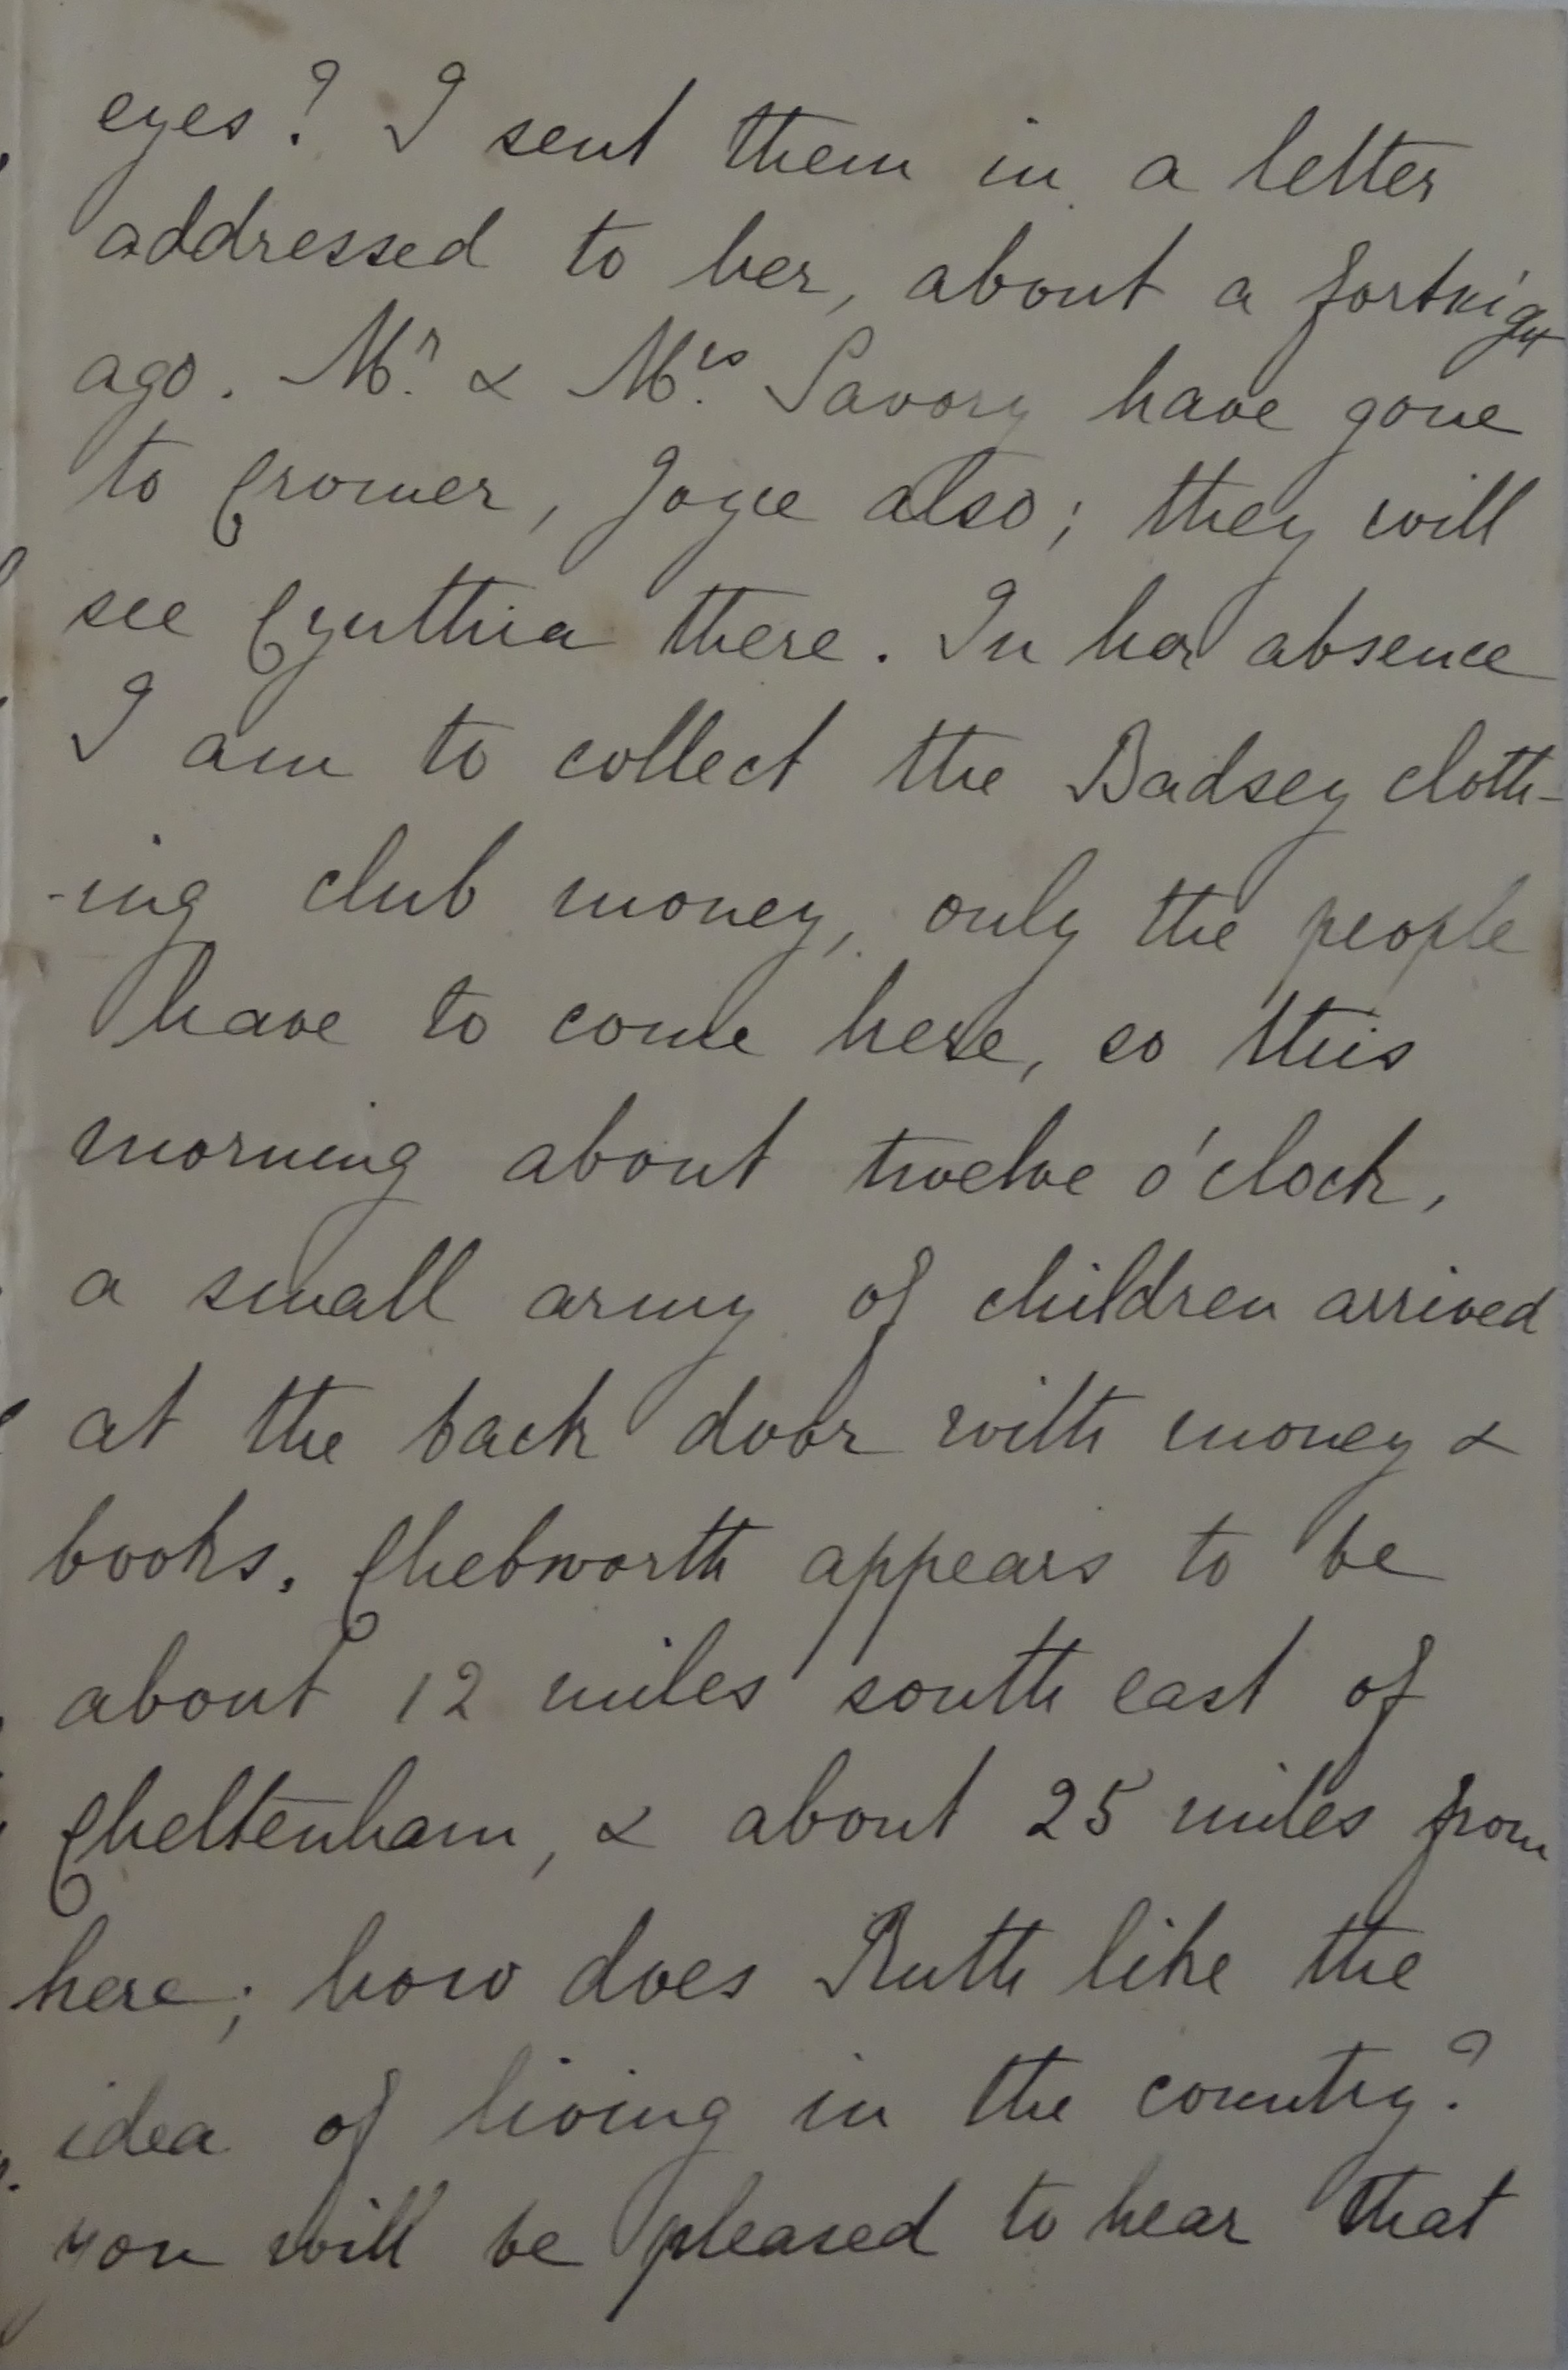 eyes? I sent them in a letter
addressed to her, about a fortnight
ago. Mr. & Mrs. Savory have gone
to Cromer, Joyce also; they will
see Cynthia there. In her absence
I am to collect the Badsey cloth-
-ing club money, only the people
have to come here, so this
morning about twelve o'clock,
a small army of children arrived
at the back door with money &
books. Chebworth appears to be
about 12 miles south east of
Cheltenham, & about 25 miles from
here; how does Ruth like the
idea of living in the country?
you will be pleased to hear that